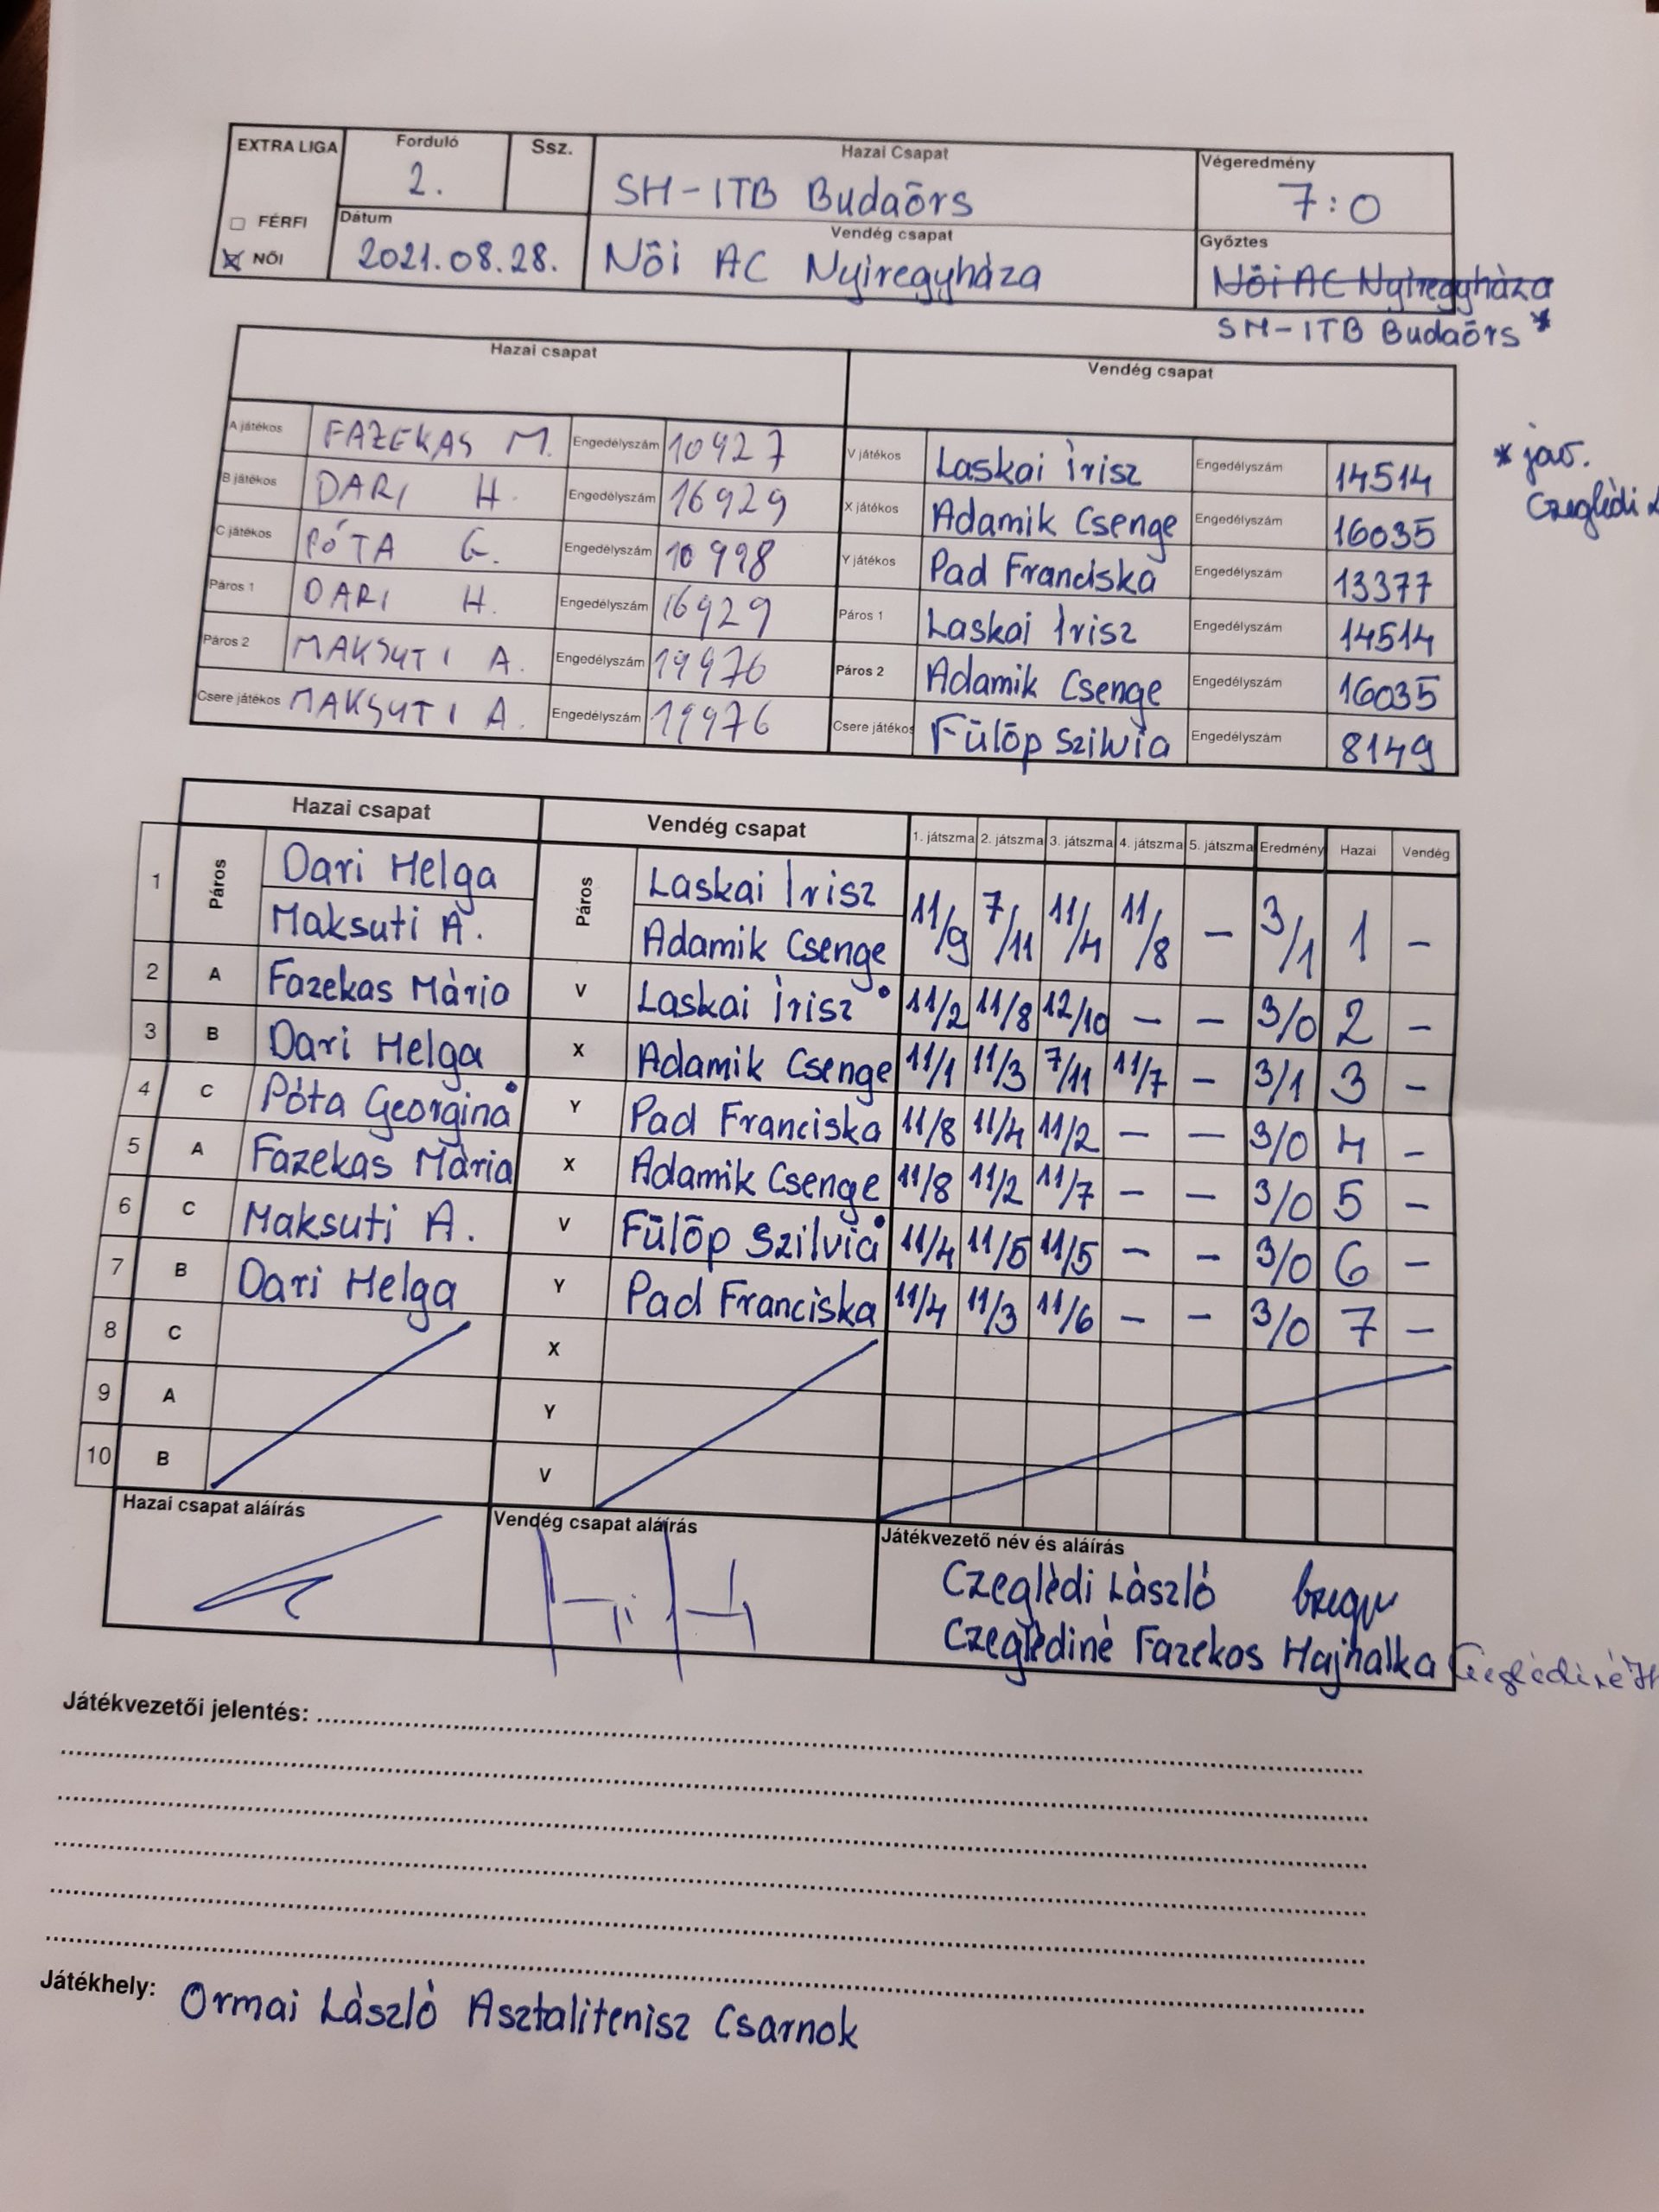 EXTRA LIGA Forduló Ssz. Hazai Csapat Végeredmény
2. SH-ITB Budaörs 7:0
☐ FÉRFI Dátum Vendég csapat Győztes
☒ NŐI 2021.08.28. Női AC Nyiregyháza Női AC Nyiregyháza
SH-ITB Budaörs *
Hazai csapat Vendég csapat
A játékos FAZEKAS M. Engedélyszám 10927 V játékos Laskai Irisz Engedélyszám 14514
* jav.
B játékos DARI H. Engedélyszám 16929 X játékos Adamik Csenge Engedélyszám 16035
Czeglédi
C játékos PÓTA G. Engedélyszám 10998 Y játékos Pad Franciska Engedélyszám 13377
Páros 1 DARI H. Engedélyszám 16929 Páros 1 Laskai Irisz Engedélyszám 14514
Páros 2 MAKSUTI A. Engedélyszám 19976 Páros 2 Adamik Csenge Engedélyszám 16035
Csere játékos MAKSUTI A. Engedélyszám 19976 Csere játékos Fülöp Szilvia Engedélyszám 8149
Hazai csapat Vendég csapat 1. játszma 2. játszma 3. játszma 4. játszma 5. játszma Eredmény Hazai Vendég
1 Páros Dari Helga Páros Laskai Irisz 11/9 7/11 11/4 11/8 – 3/1 1 –
Maksuti A. Adamik Csenge
2 A Fazekas Mária V Laskai Irisz• 11/2 11/8 12/10 – – 3/0 2 –
3 B Dari Helga X Adamik Csenge 11/1 11/3 7/11 11/7 – 3/1 3 –
4 C Póta Georgina• Y Pad Franciska 11/8 11/4 11/2 – – 3/0 4 –
5 A Fazekas Mária X Adamik Csenge 11/8 11/2 11/7 – – 3/0 5 –
6 C Maksuti A. V Fülöp Szilvia• 11/4 11/5 11/5 – – 3/0 6 –
7 B Dari Helga Y Pad Franciska 11/4 11/3 11/6 – – 3/0 7 –
8 C X
9 A Y
10 B V
Hazai csapat aláírás Vendég csapat aláírás Játékvezető név és aláírás
Czeglédi László
Czeglédiné Fazekas Hajnalka Czeglédiné
Játékvezetői jelentés:
Játékhely: Ormai László Asztalitenisz Csarnok